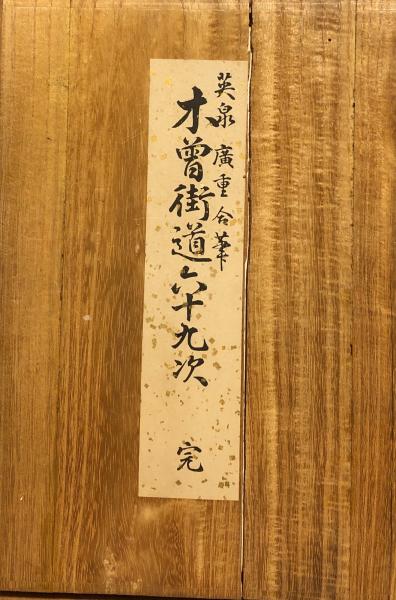 英泉 廣重合筆
木曽街道六十九次 完